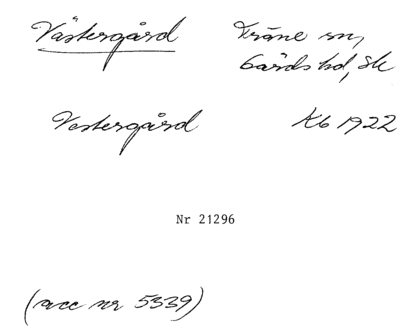 Västergård Träne sn,
Gärds hd, Sk
Vestergård Kb 1922
Nr 21296
(acc nr 5339)